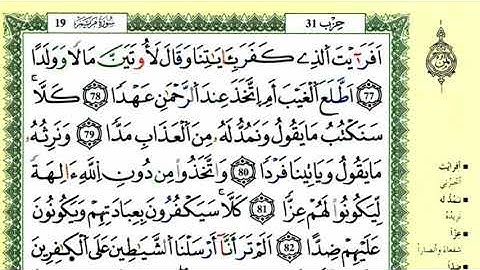 19 سُورَةُ مَرْيَمَ
حِزْب 31
أَفَرَٰٓيْتَ ٱلذِے كَفَرَ بِـَٔايَٰتِنَا وَقَالَ لَأُوتَيَنَّ مَالاٗ وَوَلَداً
77 اَطَّلَعَ ٱلْغَيْبَ أَمِ ٱتَّخَذَ عِندَ ٱلرَّحْمَٰنِ عَهْداٗ 78 كَلَّاۖ
سَنَكْتُبُ مَا يَقُولُ وَنَمُدُّ لَهُۥ مِنَ ٱلْعَذَابِ مَدّاٗ 79 وَنَرِثُهُۥ
مَا يَقُولُ وَيَاتِينَا فَرْداٗ 80 وَاتَّخَذُواْ مِن دُونِ ٱللَّهِ ءَالِهَةٗ
لِّيَكُونُواْ لَهُمْ عِزّاٗ 81 كَلَّاۖ سَيَكْفُرُونَ بِعِبَادَتِهِمْ وَيَكُونُونَ
عَلَيْهِمْ ضِدّاً 82 اَلَمْ تَرَ أَنَّآ أَرْسَلْنَا ٱلشَّيَٰطِينَ عَلَى ٱلْكَٰفِرِينَ
أفرايت
أخبرني
نمد له
نزيده
عزّا
شفعاء وأنصارا
ضدّا